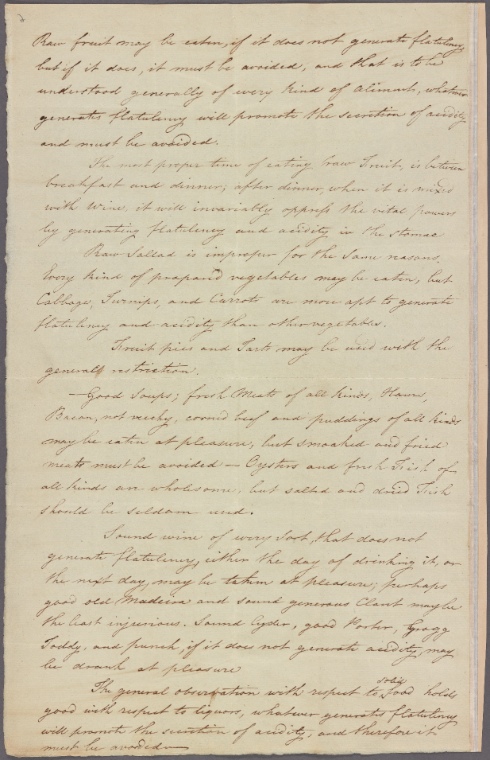 Raw fruit may be eaten, if it does not generate flatulency
but if it does, it must be avoided, and that is to be
understood generally of every kind of Aliment, whatever
generates flatulency will promote the secretion of acidity
and must be avoided.
The most proper time of eating raw Fruit, is between
breakfast and dinner; after dinner, when it is mixed
with Wine, it will invariably oppress the vital powers
by generating flatulency and acidity in the stomac
Raw Sallad is improper for the same reasons,
Every kind of prepared vegetables may be eaten, but
Cabbage, Turnips, and Carrots are more apt to generate
flatulency and acidity than other vegetables.
Fruit pies and Tarts may be used with the
general restriction.
— Good Soups; fresh Meats of all kinds, Hams,
Bacon, not reechy, corned beef and puddings of all kinds
may be eaten at pleasure, but smoaked and fried
meats must be avoided — Oysters and fresh Fish of
all kinds are wholesome, but salted and dried Fish
should be seldom used.
Sound wine of every Sort that does not
generate flatulency, either the day of drinking it, or
the next day, may be taken at pleasure; perhaps
good old Madeira and sound generous Claret may be
the least injurious. Sound Cyder, good Porter, Grogg
Toddy, and punch, if it does not generate acidity, may
be drank at pleasure
The general observation with respect to solid food holds
good with respect to liquors, whatever generates flatulency
will promote the secretion of acidity, and therefore it
must be avoided —